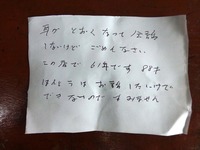 耳が とおくなって 会話
しないけど ごめんなさい
この店で 61年です 88才
ほんとうは お話したいけど
できないのです すみません